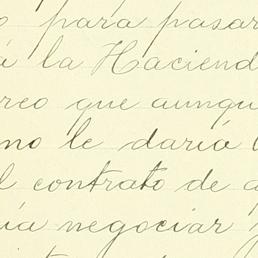 para pasar
á la Haciend
reo que aunqu
no le daría
l contrato de a
ía negociar